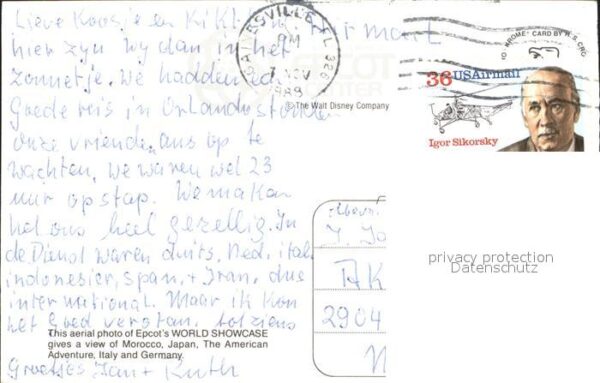 Lieve Koosje en Kikt
hier zyn wy dan in het
zonnetje. We hadden ed
Goede reis in Orlando stonden
onze vrienden ons op te
wachten, we waren wel 23
uur op stap. We maken
het ons heel gezellig. In
de Dienst waren duits, Ned, ital
indonesier, Span, + Iran, dus
international. Maar ik kon
het Goed verstan, tot ziens
Groetjes Jan + Ruth
GAINESVILLE, FL 326
PM
7 NOV
1988
© The Walt Disney Company
EPCOT
CENTER
KROME® CARD BY H.S. CRO
36 USAirmail
Igor Sikorsky
J. Jo
AK
2904
N
privacy protection
Datenschutz
This aerial photo of Epcot's WORLD SHOWCASE
gives a view of Morocco, Japan, The American
Adventure, Italy and Germany.